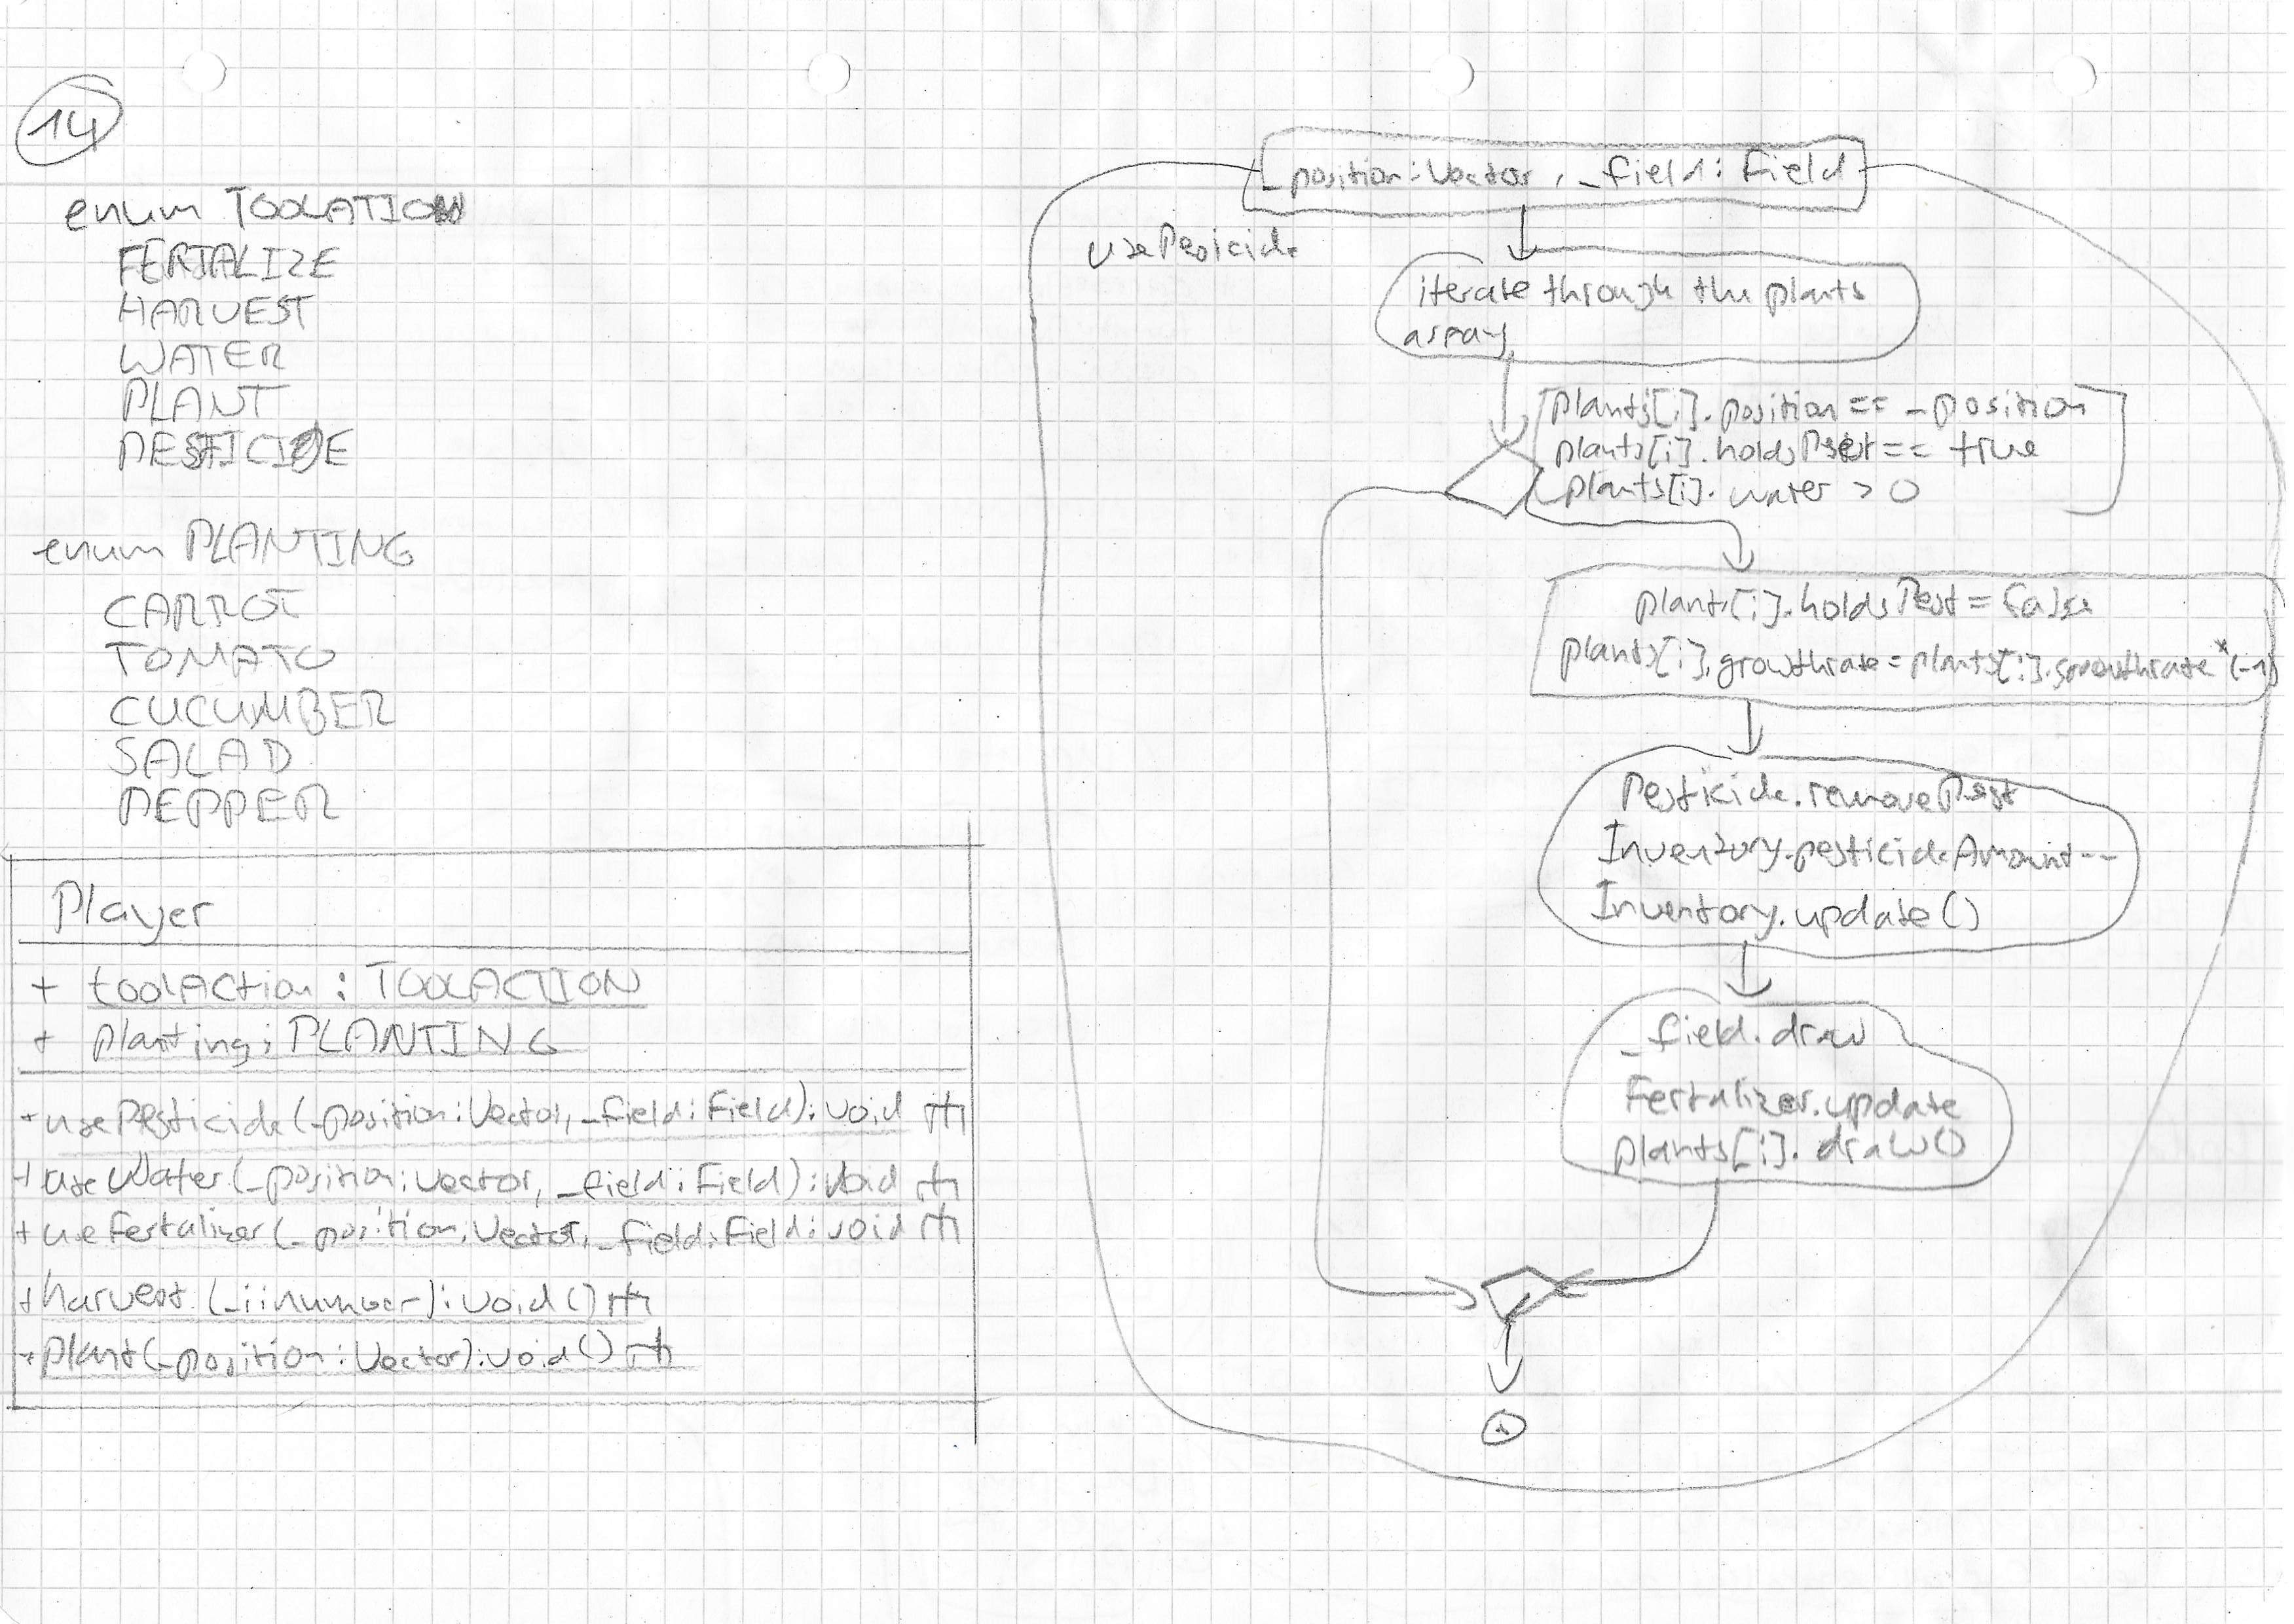 14
enum TOOLATION
FERTALIZE
HARVEST
WATER
PLANT
PESTICIDE
enum PLANTING
CARROT
TOMATO
CUCUMBER
SALAD
PEPPER
Player
+ toolAction : TOOLACTION
+ planting : PLANTING
+ usePesticide (_position : Vector, _field : Field) : void
+ useWater (_position : Vector, _field : Field) : void
+ useFertalizer (_position : Vector, _field : Field : void
+ harvest (_i : number) : void ()
+ plant (_position : Vector) : void ()
_position : Vector , _field : Field
usePesicide
iterate through the plants
array
[plants[i].position == _position
plants[i].holdsPest == true
plants[i]. water > 0 ]
plants[i].holdsPest = false
plants[i].growthrate = plants[i].growthrate * (-1)
Pesticide.removePest
Inventory.pesticideAmount--
Inventory.update ()
_field.draw
Fertalizer.update
plants[i]. draw()